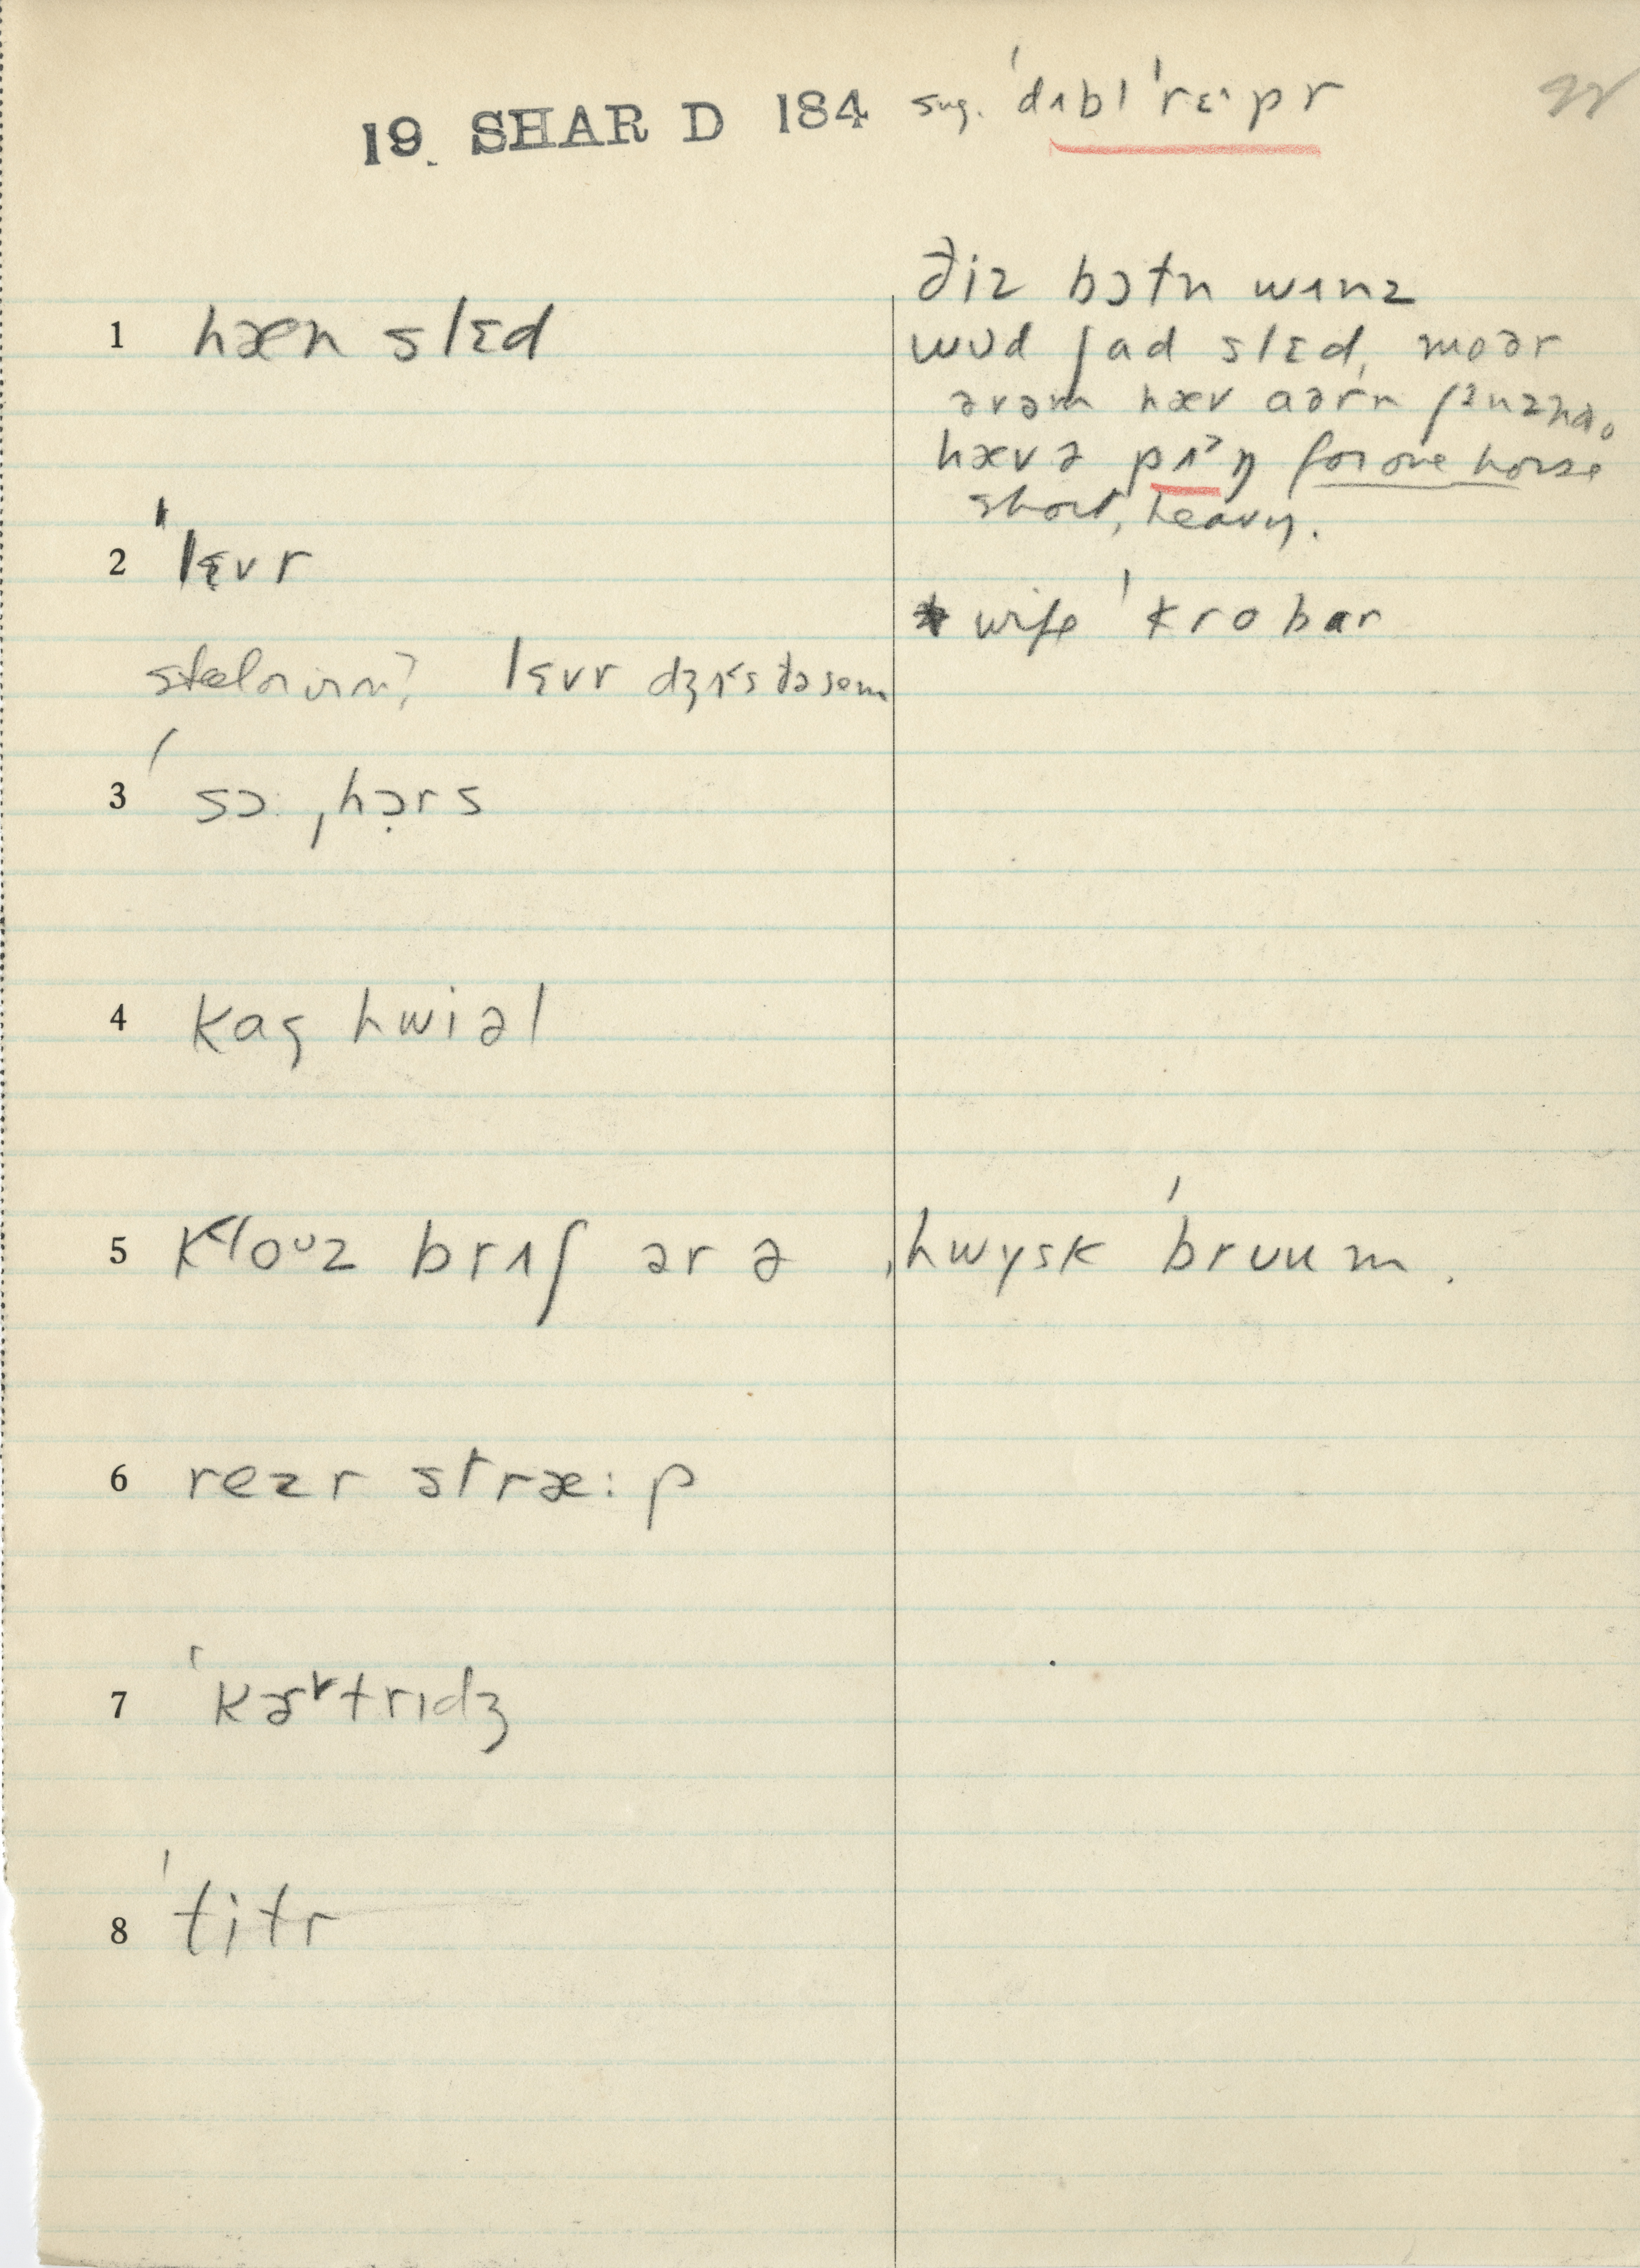 19. SHAR D 184 sug. ˈdʌblˈrɛˑpr
ðiz bɔtn wʌnz
1 hæn slɛd
wʊd ʃad slɛd, moər
əvəm hæv aərn
hævə pʌˀŋ for one horse
short, heavy.
2 ˈlɛvr
* wife ˈkrobar
steel or iron? lɛvr dʒʌs ðə sem
3 ˈsɔ: ˌhɔ̣rs
4 kag hwiəl
5 klouz brʌʃ ər ə ˌhwysk ˈbruum.
6 rezr stræ:p
7 ˈkɑrtrɪdʒ
8 ˈtitr